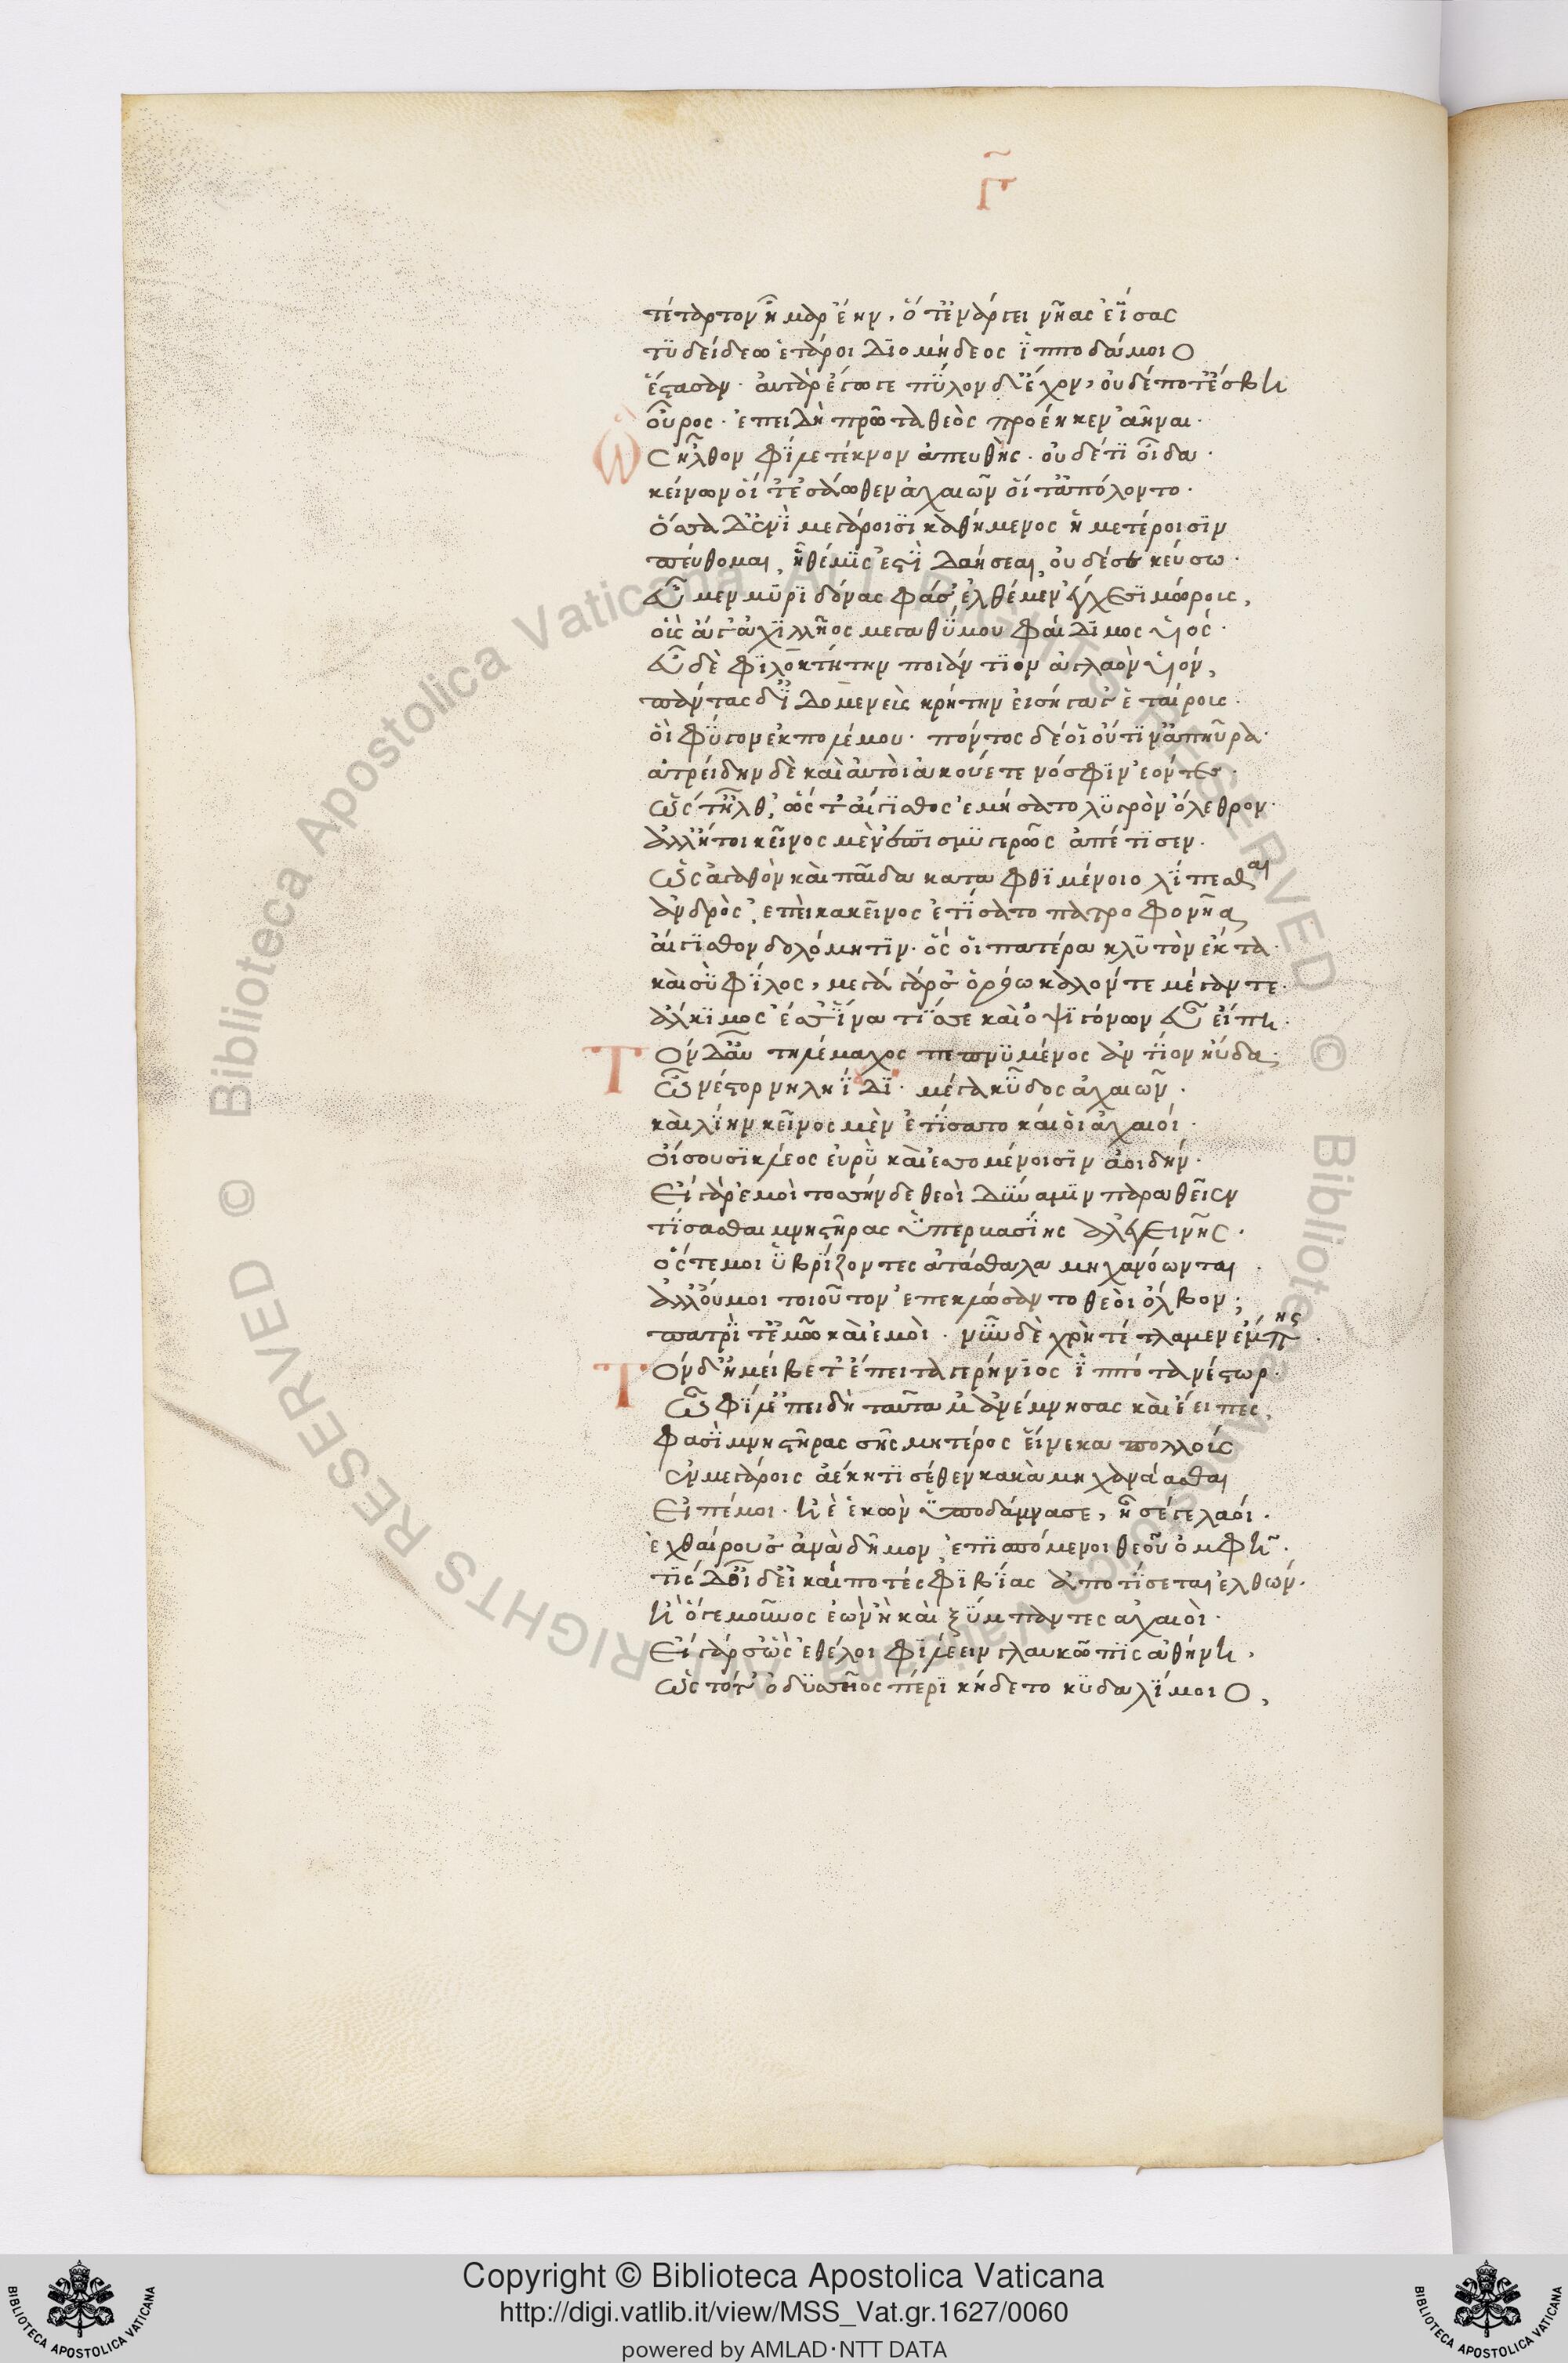 Γ
τέταρτον ἦμαρ ἔην, ὅτ' ἐν ἄργεϊ νῆας ἐΐσας
τυδείδεω ἕταροι διομήδεος ἱπποδάμοιο
ἕστασαν· αὐτὰρ ἔγωγε πύλον δ' ἔχον, οὐδέποτ' ἔσβη
οὖρος· ἐπειδὴ πρῶτα θεὸς προέηκεν ἀῆναι·
Ὣς ἦλθον φίλε τέκνον ἀπευθὴς· οὐδέ τι οἶδα·
κείνων οἵ τ' ἐσάωθεν ἀχαιῶν οἵ τ' ἀπόλοντο·
ὅσσα δ' ἐνὶ μεγάροισι καθήμενος ἡμετέροισιν
πεύθομαι, ἣ θέμις ἐστὶ δαήσεαι, οὐδέ σε κεύσω·
εὖ μεν μυρμιδόνας φάσ' ἐλθέμεν ἐγχεσιμώρους,
οὓς ἄγ' ἀχιλλῆος μεγαθύμου φαίδιμος υἱός·
εὖ δὲ φιλοκτήτην ποιάντιον ἀγλαὸν υἱόν,
πάντας δ' ἰδομενεὺς κρήτην εἰσήγαγ' ἑταίρους·
οἳ φύγον ἐκ πολέμου· πόντος δέ οἱ οὔτιν' ἀπηύρα·
ἀτρείδην δὲ καὶ αὐτοὶ ἀκούετε νόσφιν ἐόντες·
ὥς τ' ἦλθ', ὥς τ' αἴγισθος ἐμήσατο λυγρὸν ὄλεθρον·
ἀλλ' ἤτοι κεῖνος μὲν ἐπισμυγερῶς ἀπέτισεν·
Ὡς ἀγαθὸν καὶ παῖδα καταφθιμένοιο λίπεσθαι
ἀνδρὸς, ἐπεὶ κακεῖνος ἐτίσατο πατροφονῆα
αἴγισθον δολόμητιν· ὅς οἱ πατέρα κλυτὸν ἔκτα·
καὶ σὺ φίλος, μάλα γάρ σ' ὁρόω καλόν τε μέγαν τε·
ἄλκιμος ἔσσ' ἵνα τίς σε καὶ ὀψιγόνων εὖ εἴπῃ·
Τὸν δ' αὖ τηλέμαχος πεπνυμένος ἀντίον ηὔδα·
Ὦ νέστορ νηληϊάδη· μέγα κῦδος ἀχαιῶν·
καὶ λίην κεῖνος μὲν ἐτίσατο καί οἱ ἀχαιοί·
οἴσουσι κλέος εὐρὺ καὶ ἐσσομένοισιν ἀοιδήν·
Εἰ γὰρ ἐμοὶ τοσσήνδε θεοὶ δύναμιν παραθεῖεν
τίσασθαι μνηστῆρας ὑπερβασίης ἀλεγεινῆς·
οἵ τέ μοι ὑβρίζοντες ἀτάσθαλα μηχανόωνται·
ἀλλ' οὔ μοι τοιοῦτον ἐπεκλώσαντο θεοὶ ὄλβον;
πατρί τ' ἐμῷ καὶ ἐμοὶ· νῦν δὲ χρὴ τέτλαμεν ἔμπης·
Τὸν δ' ἠμείβετ' ἔπειτα γερήνιος ἱππότα νέστωρ·
Ὦ φίλ' ἐπειδὴ ταῦτα μ' ἀνέμνησας καὶ ἔειπες,
φασὶ μνηστῆρας σῆς μητέρος εἵνεκα πολλοὺς
ἐν μεγάροις ἀέκητι σέθεν κακὰ μηχανάασθαι
Εἰπέ μοι· ἠὲ ἑκὼν ὑποδάμνασαι, ἦ σέ γε λαοί·
ἐχθαίρουσ' ἀνὰ δῆμον, ἐπισπόμενοι θεοῦ ὀμφῇ·
τίς δ' οἶδ' εἰ καί ποτέ σφι βίας ἀποτίσεται ἐλθών·
ἢ ὅ γε μοῦνος ἐὼν ἢ καὶ ξύμπαντες ἀχαιοὶ·
Εἰ γάρ σ' ὣς ἐθέλοι φιλέειν γλαυκῶπις ἀθήνη,
ὡς τότ' ὀδυσσῆος πέρι κήδετο κυδαλίμοιο,
Copyright © Biblioteca Apostolica Vaticana
http://digi.vatlib.it/view/MSS_Vat.gr.1627/0060
powered by AMLAD·NTT DATA
BIBLIOTECA APOSTOLICA VATICANA
BIBLIOTECA APOSTOLICA VATICANA
© Biblioteca Apostolica Vaticana ALL RIGHTS RESERVED
© Biblioteca Apostolica Vaticana ALL RIGHTS RESERVED